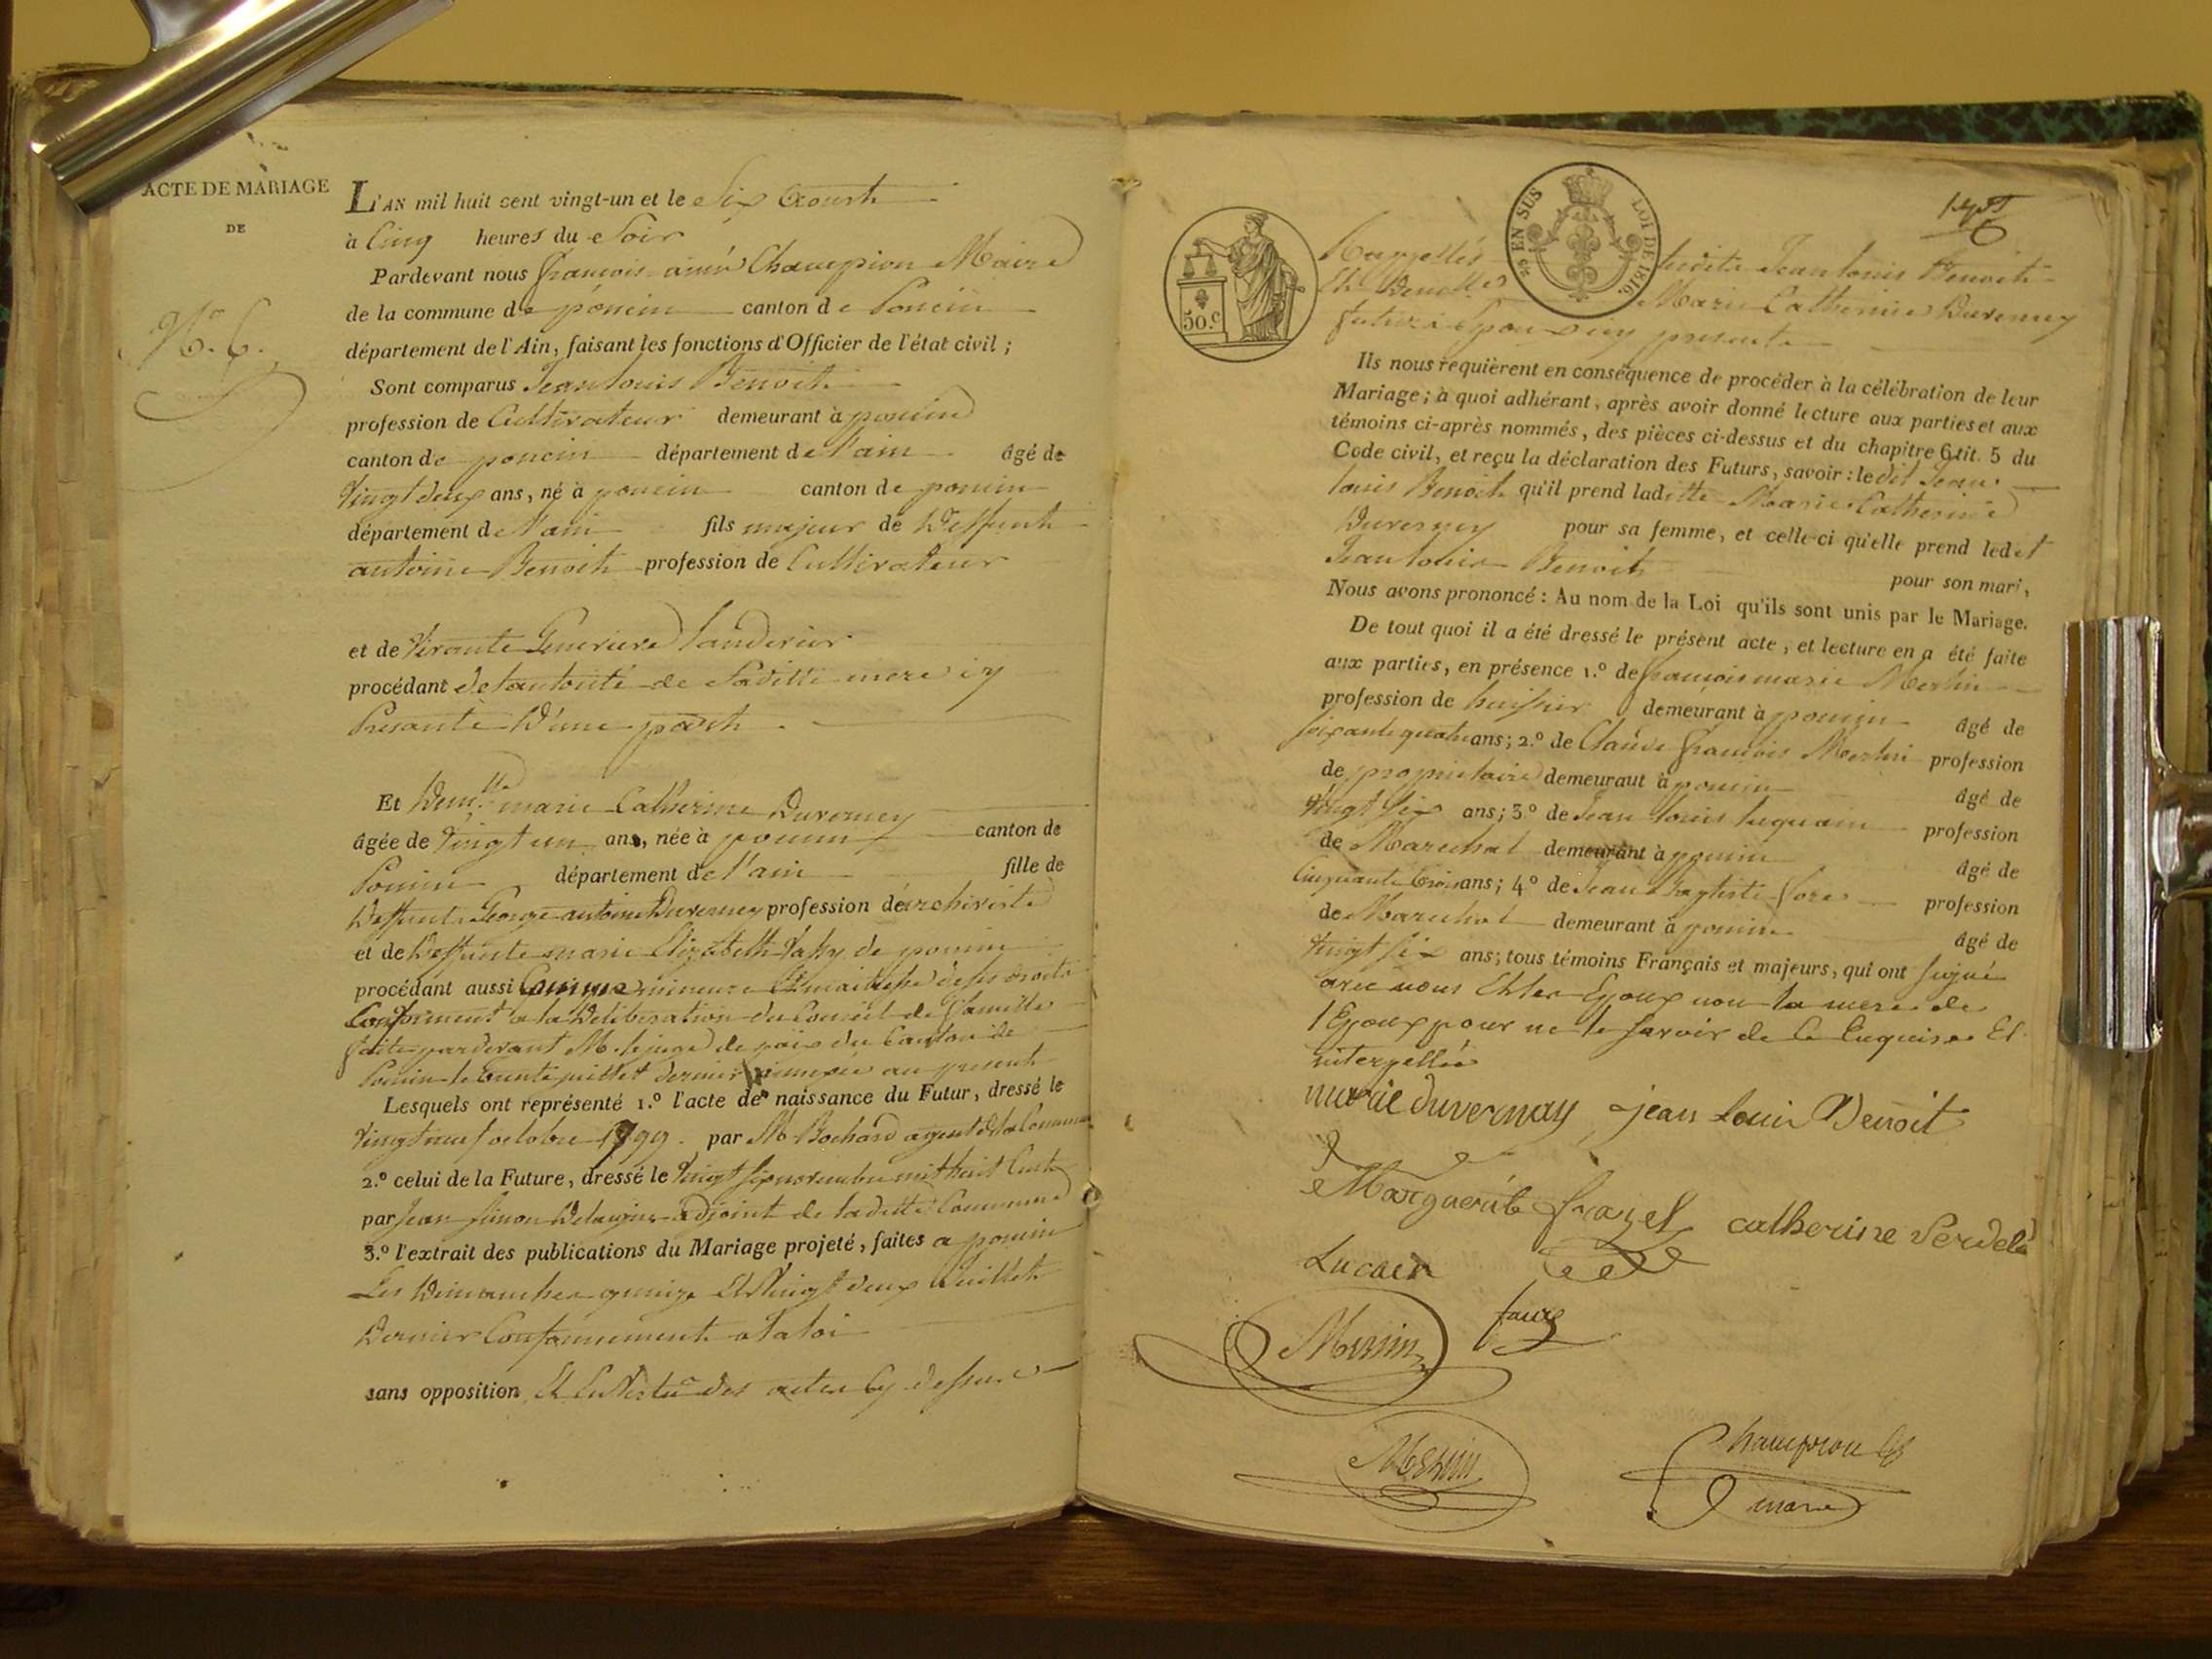 ACTE DE MARIAGE
DE
N.° 6.
L'AN mil huit cent vingt-un et le Six Aoust
à Cinq heures du Soir
Pardevant nous françois aimé Champion Maire
de la commune de poncin canton de Poncin
département de l'Ain, faisant les fonctions d'Officier de l'état civil ;
Sont comparus Jean Louis Benoit
profession de Cultivateur demeurant à poncin
canton de poncin département de l'ain âgé de
Vingt deux ans, né à poncin canton de poncin
département de l'ain fils majeur de Deffunt
antoine Benoit profession de Cultivateur
et de Vivante
procédant de l'autorité de Saditte mere icy
Presante D'une part
Et Dem.lle marie Catherine Duverney
âgée de Vingt un ans, née à poncin canton de
Poncin département de l'ain fille de
Deffunt George antoine Duverney profession de archiviste
et de Deffunte marie Elizabeth de poncin
procédant aussi Comme mineure Et maitresse de ses droits
Conforment a la Deliberation du Conseil de famille
faite pardevant M. le juge de paix du Canton de
Poncin le trente juillet dernier annexée au present
Lesquels ont représenté 1.° l'acte de naissance du Futur, dressé le
Vingt neuf octobre 1799. par M. Bochard agent de la Commune
2.° celui de la Future, dressé le Vingt six novembre mil huit Cent
par Jean Simon adjoint de laditte Commune
3.° l'extrait des publications du Mariage projeté, faites a poncin
Les Dimanches quinze Et Vingt deux Juillet
Dernier Conformement a la loi
sans opposition Et En Vertu des actes Cy dessus
EN SUS
LOI DE 1816.
50.c
Rappellés ledit Jean Louis Benoit
Et Demlle Marie Catherine Duverney
futurs Epoux icy presents
Ils nous requièrent en conséquence de procéder à la célébration de leur
Mariage ; à quoi adhérant, après avoir donné lecture aux parties et aux
témoins ci-après nommés, des pièces ci-dessus et du chapitre 6 tit. 5 du
Code civil, et reçu la déclaration des Futurs, savoir : ledit Jean
Louis Benoit qu'il prend laditte Marie Catherine
Duverney pour sa femme, et celle-ci qu'elle prend ledit
Jean Louis Benoit pour son mari,
Nous avons prononcé : Au nom de la Loi qu'ils sont unis par le Mariage.
De tout quoi il a été dressé le présent acte, et lecture en a été faite
aux parties, en présence 1.° de françois marie Merlin
profession de huissier demeurant à poncin âgé de
soixante quatre ans ; 2.° de Claude françois Merlin profession
de proprietaire demeurant à poncin âgé de
Vingt Six ans ; 3.° de Jean Louis profession
de Marechal demeurant à poncin âgé de
Cinquante trois ans ; 4.° de Jean Baptiste profession
de Marechal demeurant à poncin âgé de
Vingt Six ans ; tous témoins Français et majeurs, qui ont signé
avec nous Et les Epoux non la mere de
l'Epoux pour ne le savoir de ce Enquise Et
interpellée
marie duvernay jean Louis Benoit
Marguerite catherine
faure
Merlin
Merlin
Champion
maire